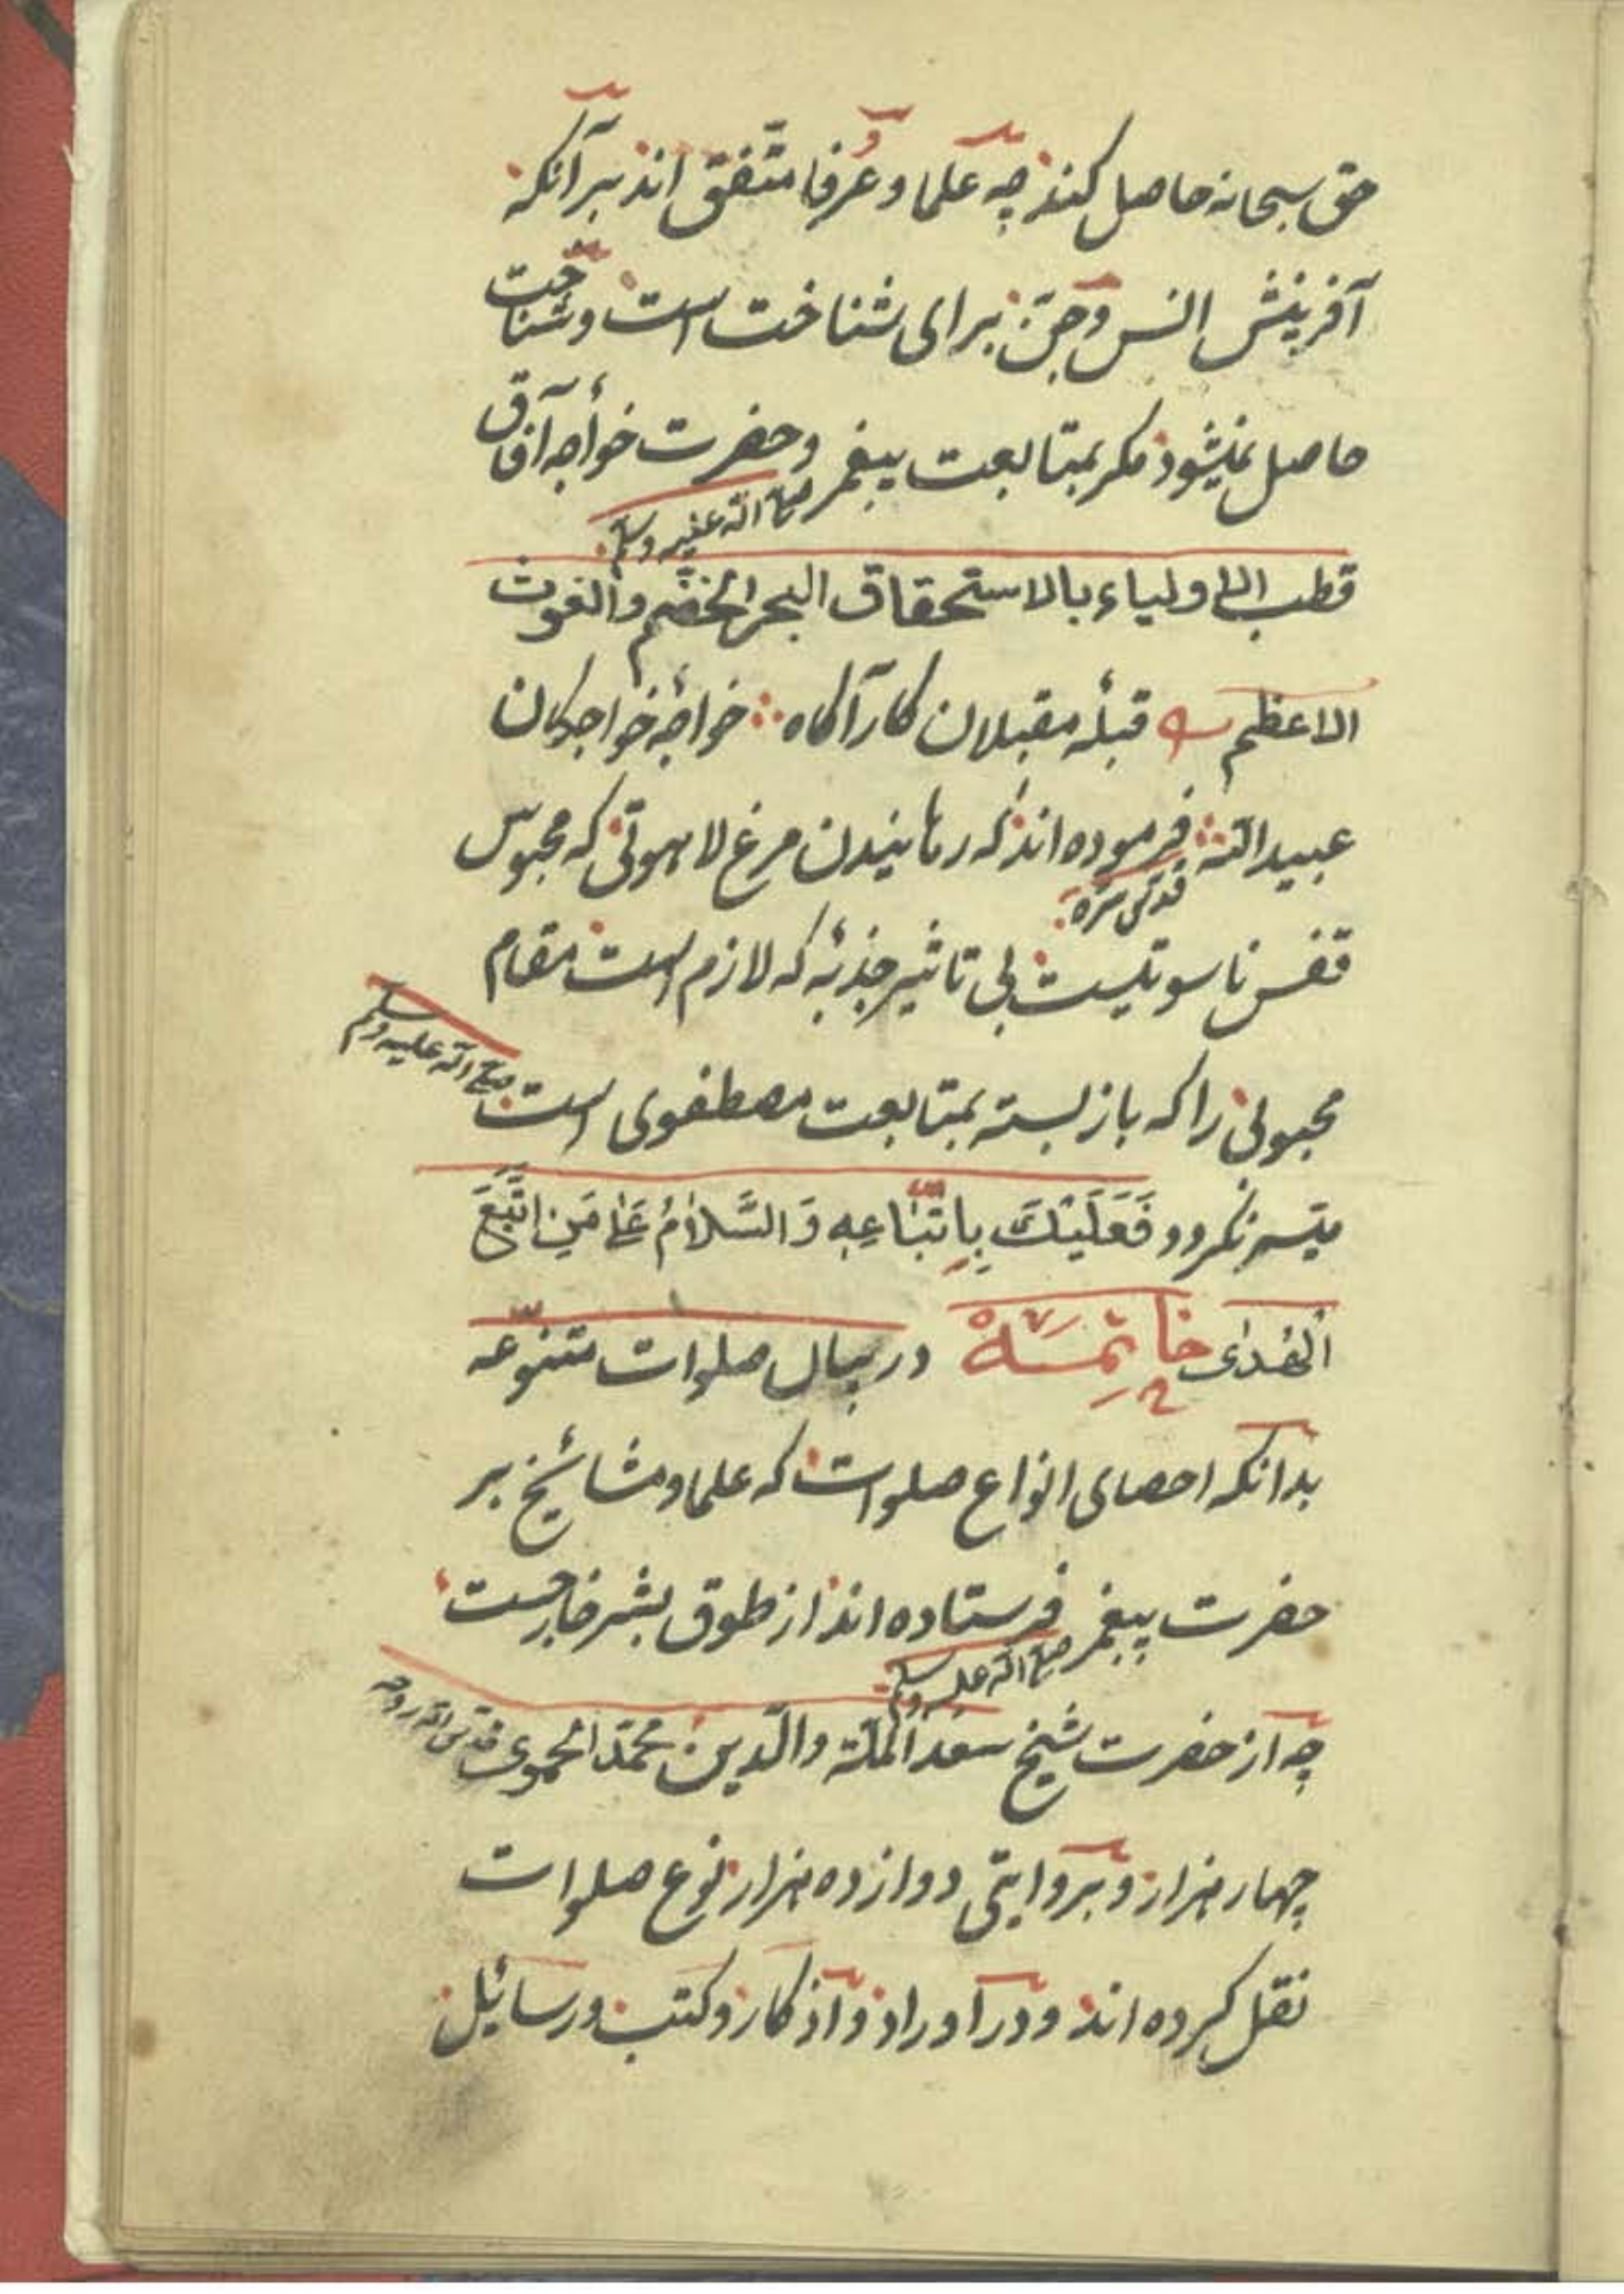 حق سبحانه حاصل کنند چه علما و عرفا متّفق اند برآنکه
آفرینش انس و جنّ برای شناخت است و شناخت
حاصل نمیشود مکر بمتابعت پیغمبر صلی الله علیه وسلم و حضرت خواجه آفاق
قطب الاولیاء بالاستحقاق البحر الخضم والغوث
الاعظم قبلهٔ مقبلان کارآکاه خواجهٔ خواجکان
عبیدالله قدس سره فرموده اند که رهانیدن مرغ لاهوتی که محبوس
قفس ناسوتیست بی تاثیر جذبهٔ که لازم است مقام
محبوبی را که باز بسته بمتابعت مصطفوی است صلی الله علیه وسلم
میسر نکردد فَعَلَیْكَ بِاتّبَاعِهِ وَالسَّلَامُ عَلٰی مَنِ اتَّبَعَ
الْهُدٰی خَاتِمَه در بیان صلوات متنوّعه
بدانکه احصای انواع صلوات که علما و مشائخ بر
حضرت پیغمبر صلی الله علیه وسلم فرستاده اند از طوق بشر خارجست
چه از حضرت شیخ سعد الملّة والدّین محمّد الحموی قدس الله روحه
چهار هزار و بروایتی دوازده هزار نوع صلوات
نقل کرده اند و در اوراد و اذکار و کتب و رسائل